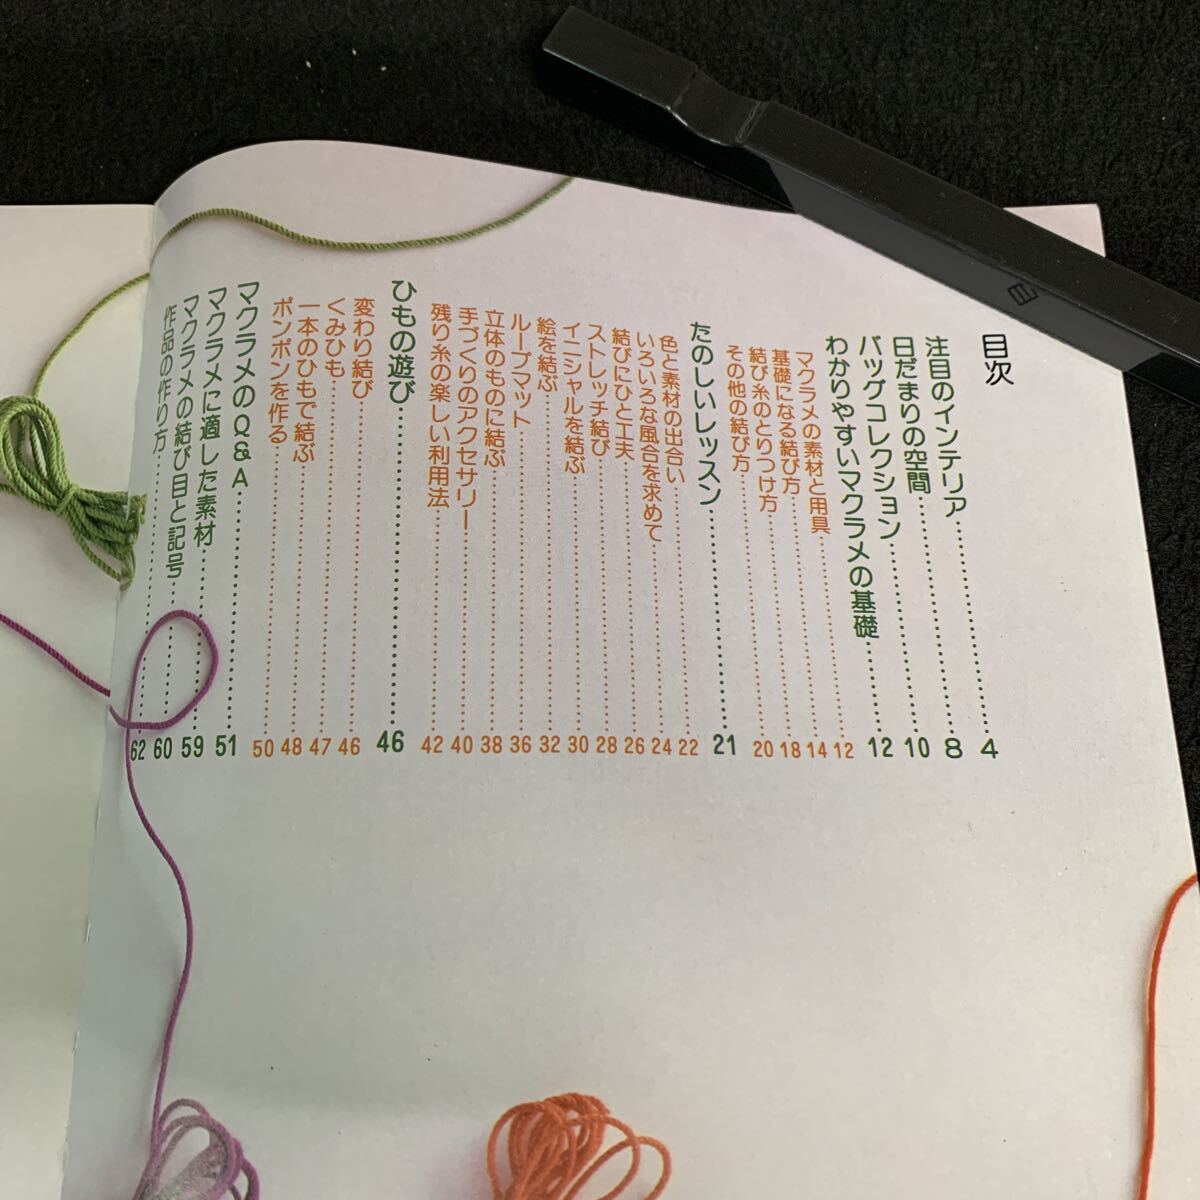 目次
注目のインテリア……4
日だまりの空間……8
バッグコレクション……10
わかりやすいマクラメの基礎……12
マクラメの素材と用具……12
基礎になる結び方……14
結び糸のとりつけ方……18
その他の結び方……20
たのしいレッスン……21
色と素材の出合い……22
いろいろな風合を求めて……24
結びにひと工夫……26
ストレッチ結び……28
イニシャルを結ぶ……30
絵を結ぶ……32
ループマット……36
立体のものに結ぶ……38
手づくりのアクセサリー……40
残り糸の楽しい利用法……42
ひもの遊び……46
変わり結び……46
くみひも……47
一本のひもで結ぶ……48
ポンポンを作る……50
マクラメのQ&A……51
マクラメに適した素材……59
マクラメの結び目と記号……60
作品の作り方……62